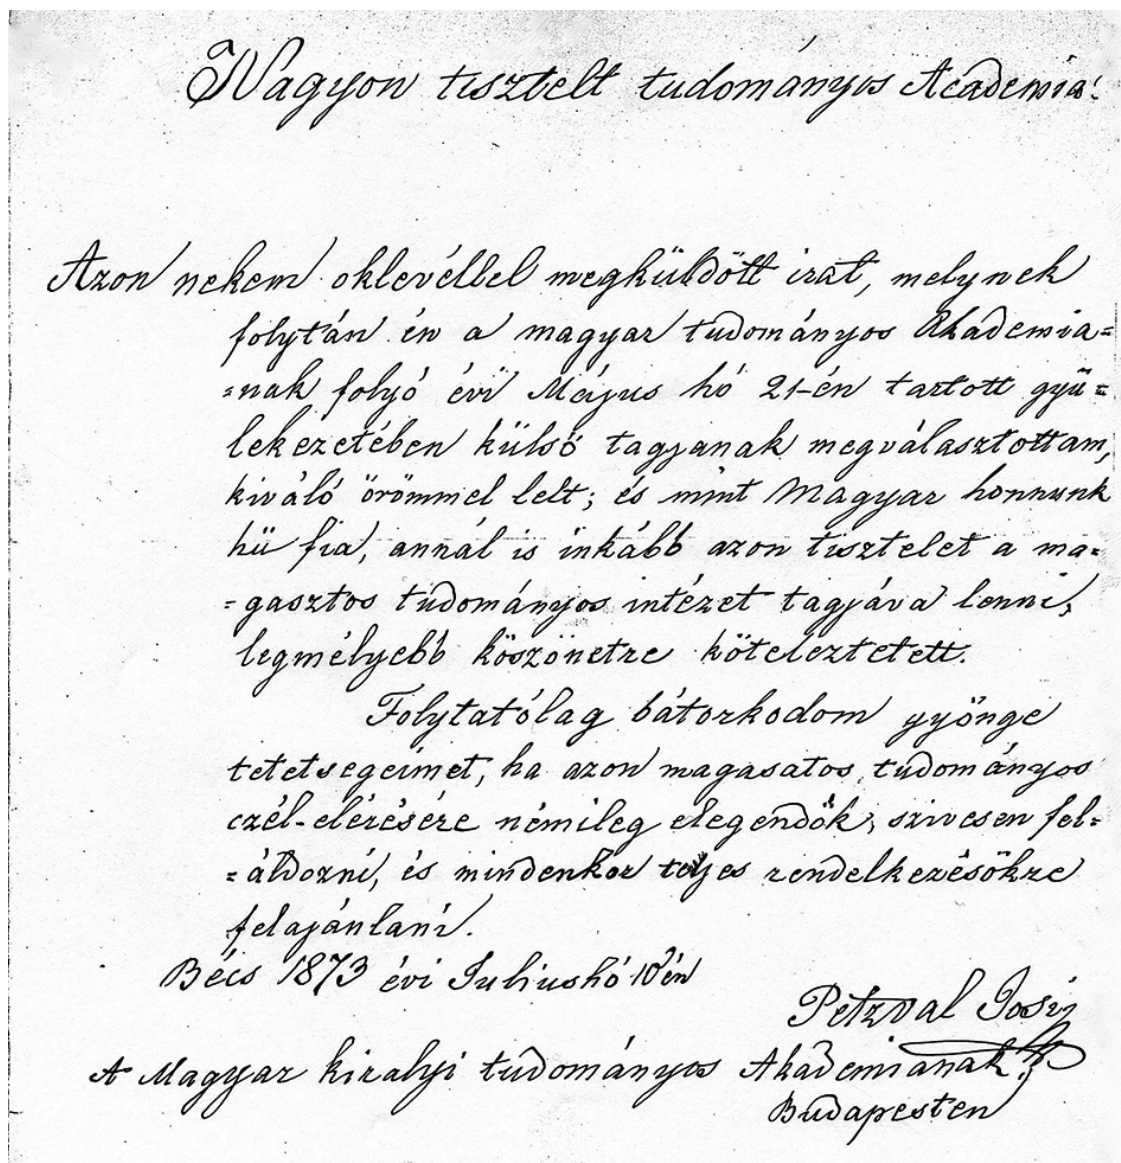 Nagyon tisztelt tudományos Academia!
Azon nekem oklevéllel megküldött irat, melynek
folytán én a magyar tudományos Akademia=
=nak folyó évi Május hó 21-én tartott gyü=
lekezetében külső tagjanak megválasztottam,
kiváló örömmel lelt; és mint Magyar honnunk
hü fia, annál is inkább azon tisztelet a ma=
=gasztos tudományos intézet tagjáva lenni,
legmélyebb köszönetre köteleztetett.
Folytatólag bátorkodom gyönge
tetetsegeimet, ha azon magasatos tudományos
czél-elérésére némileg elegendők, szivesen fel=
=áldozni, és mindenkor teljes rendelkezésökre
felajánlani.
Bécs 1873 évi Juliushó 10én
Petzval
A Magyar kiralyi tudományos Akademianak
Budapesten